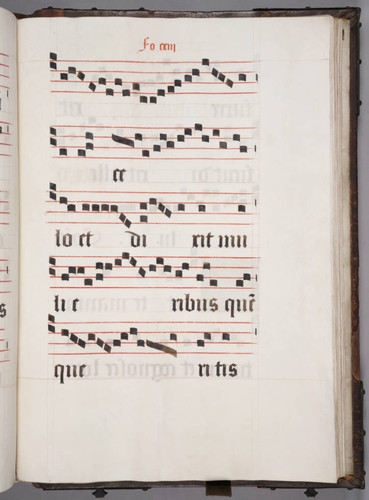 Fo cciii
ce
lo et di xit mu
li e ribus quē
que ritis